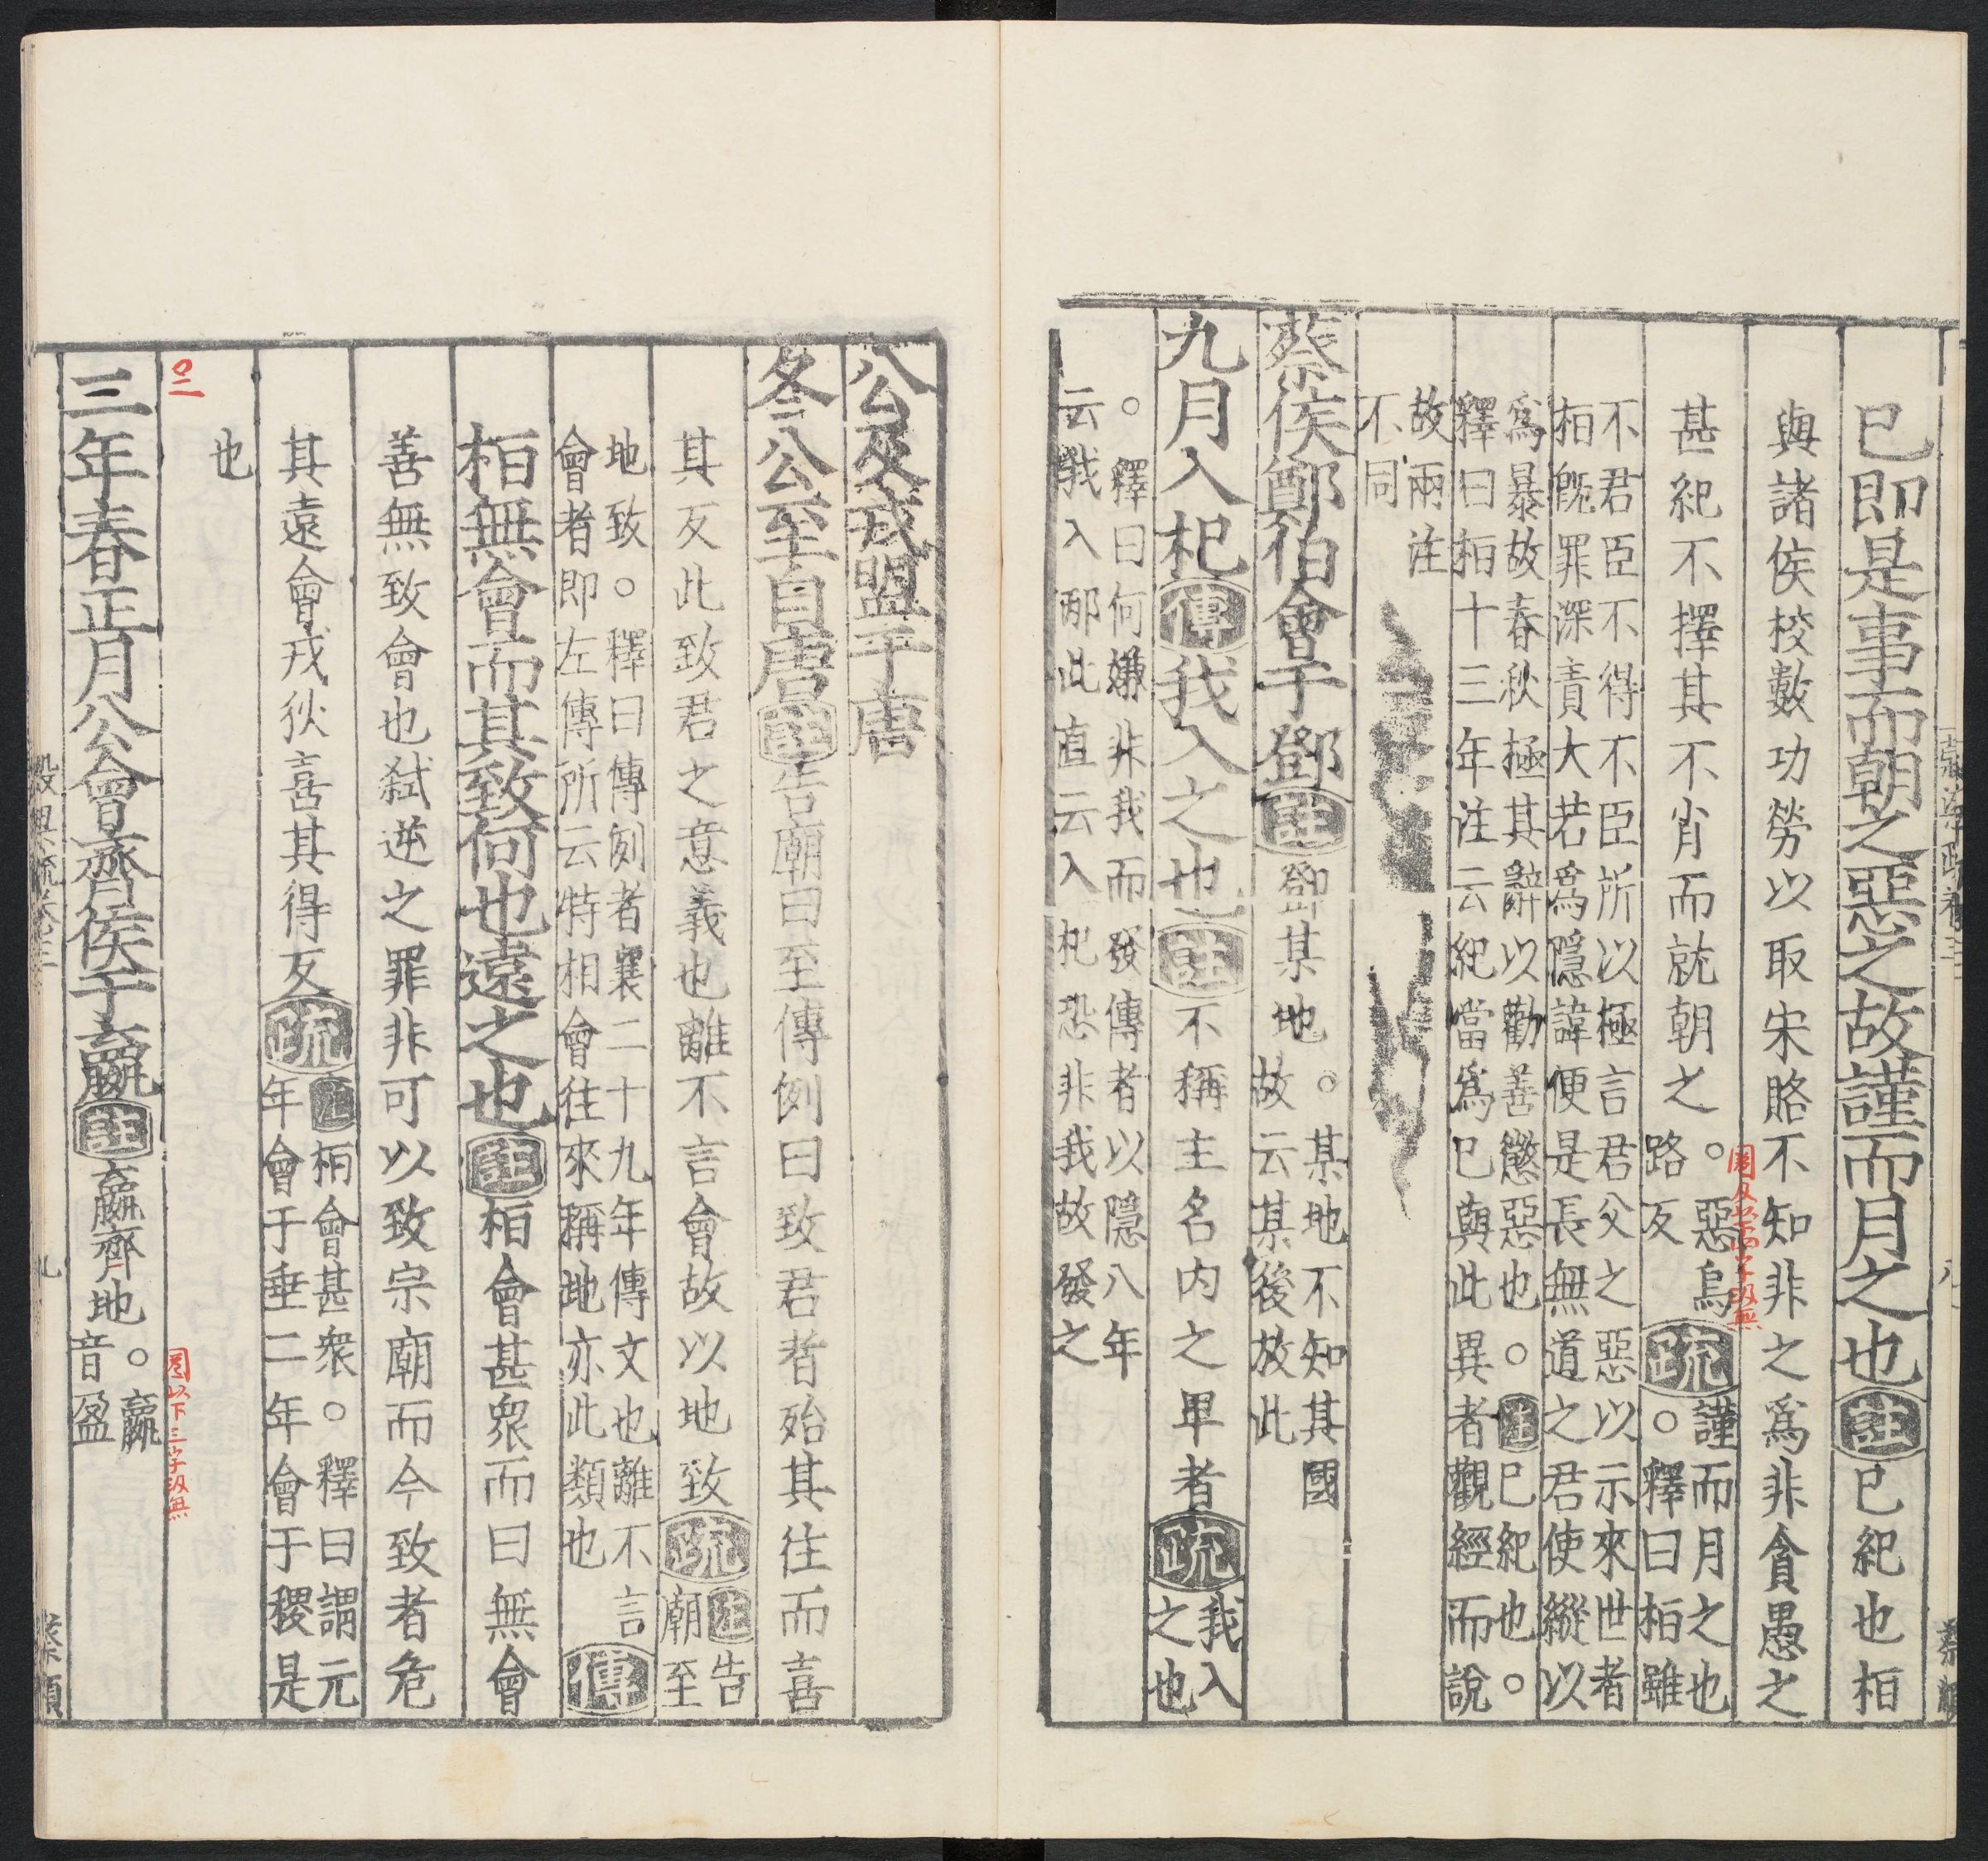 巳即是事而朝之惡之故謹而月之也註巳紀也桓
與諸侯校數功勞以取宋賂不知非之爲非貪愚之
甚紀不擇其不肖而就朝之。惡烏
路反
疏謹而月之也
。釋曰桓雖
不君臣不得不臣所以極言君父之惡以示來世者
桓旣罪深責大若爲隱諱便是長無道之君使縱以
爲暴故春秋極其辭以勸善懲惡也。註巳紀也。
釋曰桓十三年注云紀當爲巳與此異者觀經而說
故兩注
不同
蔡侯鄭伯會于鄧註鄧某地。某地不知其國
故云某後放此
九月入杞傳我入之也註不稱主名內之卑者疏我入
之也
。釋曰何嫌非我而發傳者以隱八年
云我入邴此直云入杞恐非我故發之
公及戎盟于唐
冬公至自唐註告廟曰至傳例曰致君者殆其往而喜
其反此致君之意義也離不言會故以地致疏註告
廟至
地致。釋曰傳例者襄二十九年傳文也離不言
會者即左傳所云特相會往來稱地亦此類也傳
桓無會而其致何也遠之也註桓會甚衆而曰無會
善無致會也弑逆之罪非可以致宗廟而今致者危
其遠會戎狄喜其得反疏註桓會甚衆。釋曰謂元
年會于垂二年會于稷是
也
三年春正月公會齊侯于嬴註嬴齊地。嬴
音盈
八
九
蔡順
圈以下三字汲無